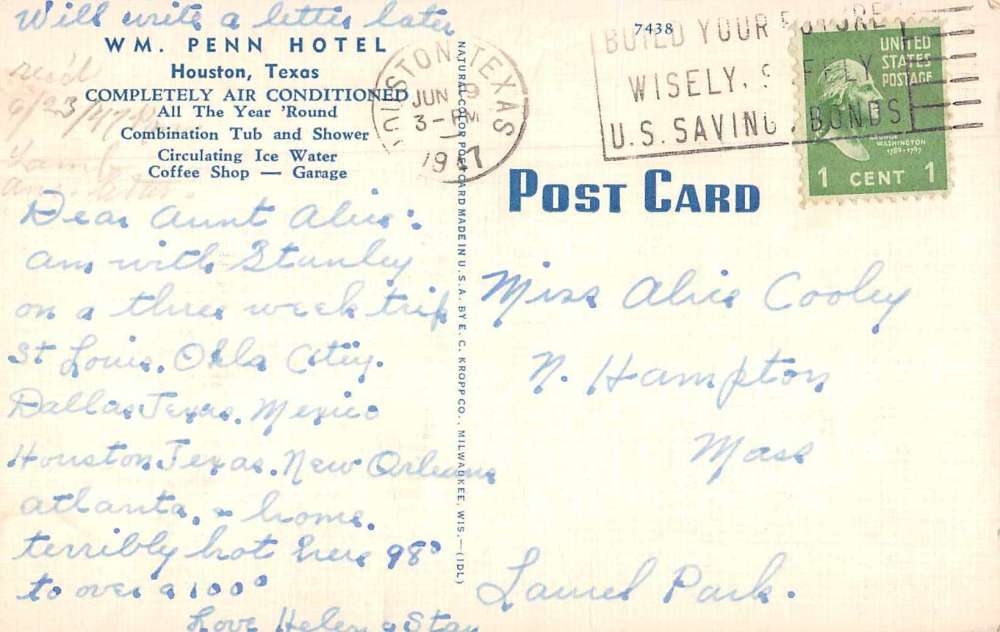 Will write a letter later
WM. PENN HOTEL
Houston, Texas
COMPLETELY AIR CONDITIONED
All The Year 'Round
Combination Tub and Shower
Circulating Ice Water
Coffee Shop — Garage
rec'd
6/23/47
Dear Aunt Alice:
Am with Stanley
on a three week trip
St Louis, Okla City.
Dallas Texas. Mexico
Houston Texas. New Orleans
Atlanta, & home.
terribly hot here 98°
to over 100°
Love Helen & Stan
NATURAL COLOR POST CARD MADE IN U.S.A. BY E. C. KROPP CO., MILWAUKEE, WIS.—(IDL)
HOUSTON, TEXAS
JUN 19
3-PM
1947
7438
BUILD YOUR FUTURE
WISELY, SAFELY
U.S. SAVINGS BONDS
UNITED
STATES
POSTAGE
GEORGE
WASHINGTON
1789-1797
1 CENT 1
POST CARD
Miss Alice Cooley
N. Hampton
Mass
Laurel Park.